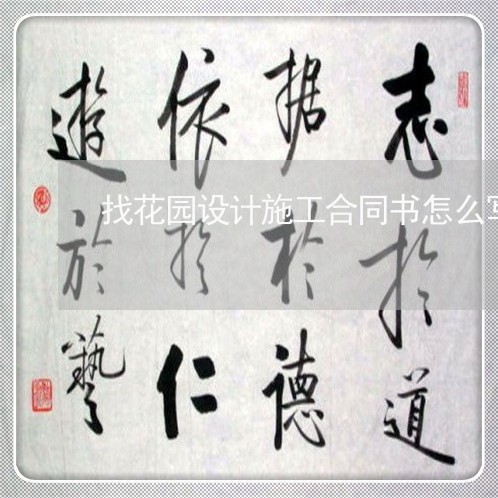 志於道
据於德
依於仁
遊於藝
找花园设计施工合同书怎么写